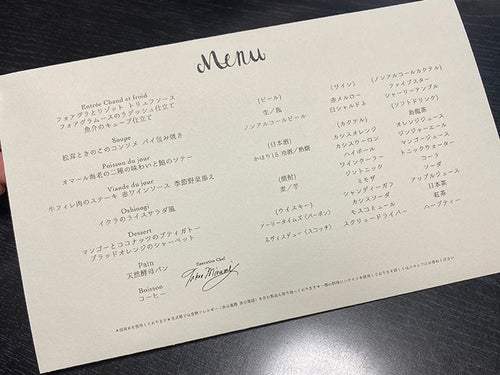 Menu
Entrée Chaud et froid
フォアグラとリゾット トリュフソース
フォアグラムースのラデッシュ仕立て
魚介のキューブ仕立て
Soupe
松茸ときのこのコンソメ パイ包み焼き
Poisson du jour
オマール海老の二種の味わいと鮑のソテー
Viande du jour
牛フィレ肉のステーキ 赤ワインソース 季節野菜添え
Oshinogi
イクラのライスサラダ風
Dessert
マンゴーとココナッツのプティガトー
ブラッドオレンジのシャーベット
Pain
天然酵母パン
Boisson
コーヒー
Executive Chef
(ビール)
生/瓶
ノンアルコールビール
(日本酒)
かほり15 冷酒/熱燗
(焼酎)
麦/芋
(ウイスキー)
アーリータイムズ(バーボン)
(スコッチ)
(ワイン)
赤メルロー
白シャルドネ
(カクテル)
カシスオレンジ
カシスウーロン
ハイボール
ワインクーラー
ジントニック
ミモザ
シャンディーガフ
カシスソーダ
モスコミュール
スクリュードライバー
(ノンアルコールカクテル)
ファイブスター
シャーリーテンプル
(ソフトドリンク)
烏龍茶
オレンジジュース
ジンジャーエール
マンゴージュース
トニックウォーター
コーラ
ソーダ
アップルジュース
日本茶
紅茶
ハーブティー